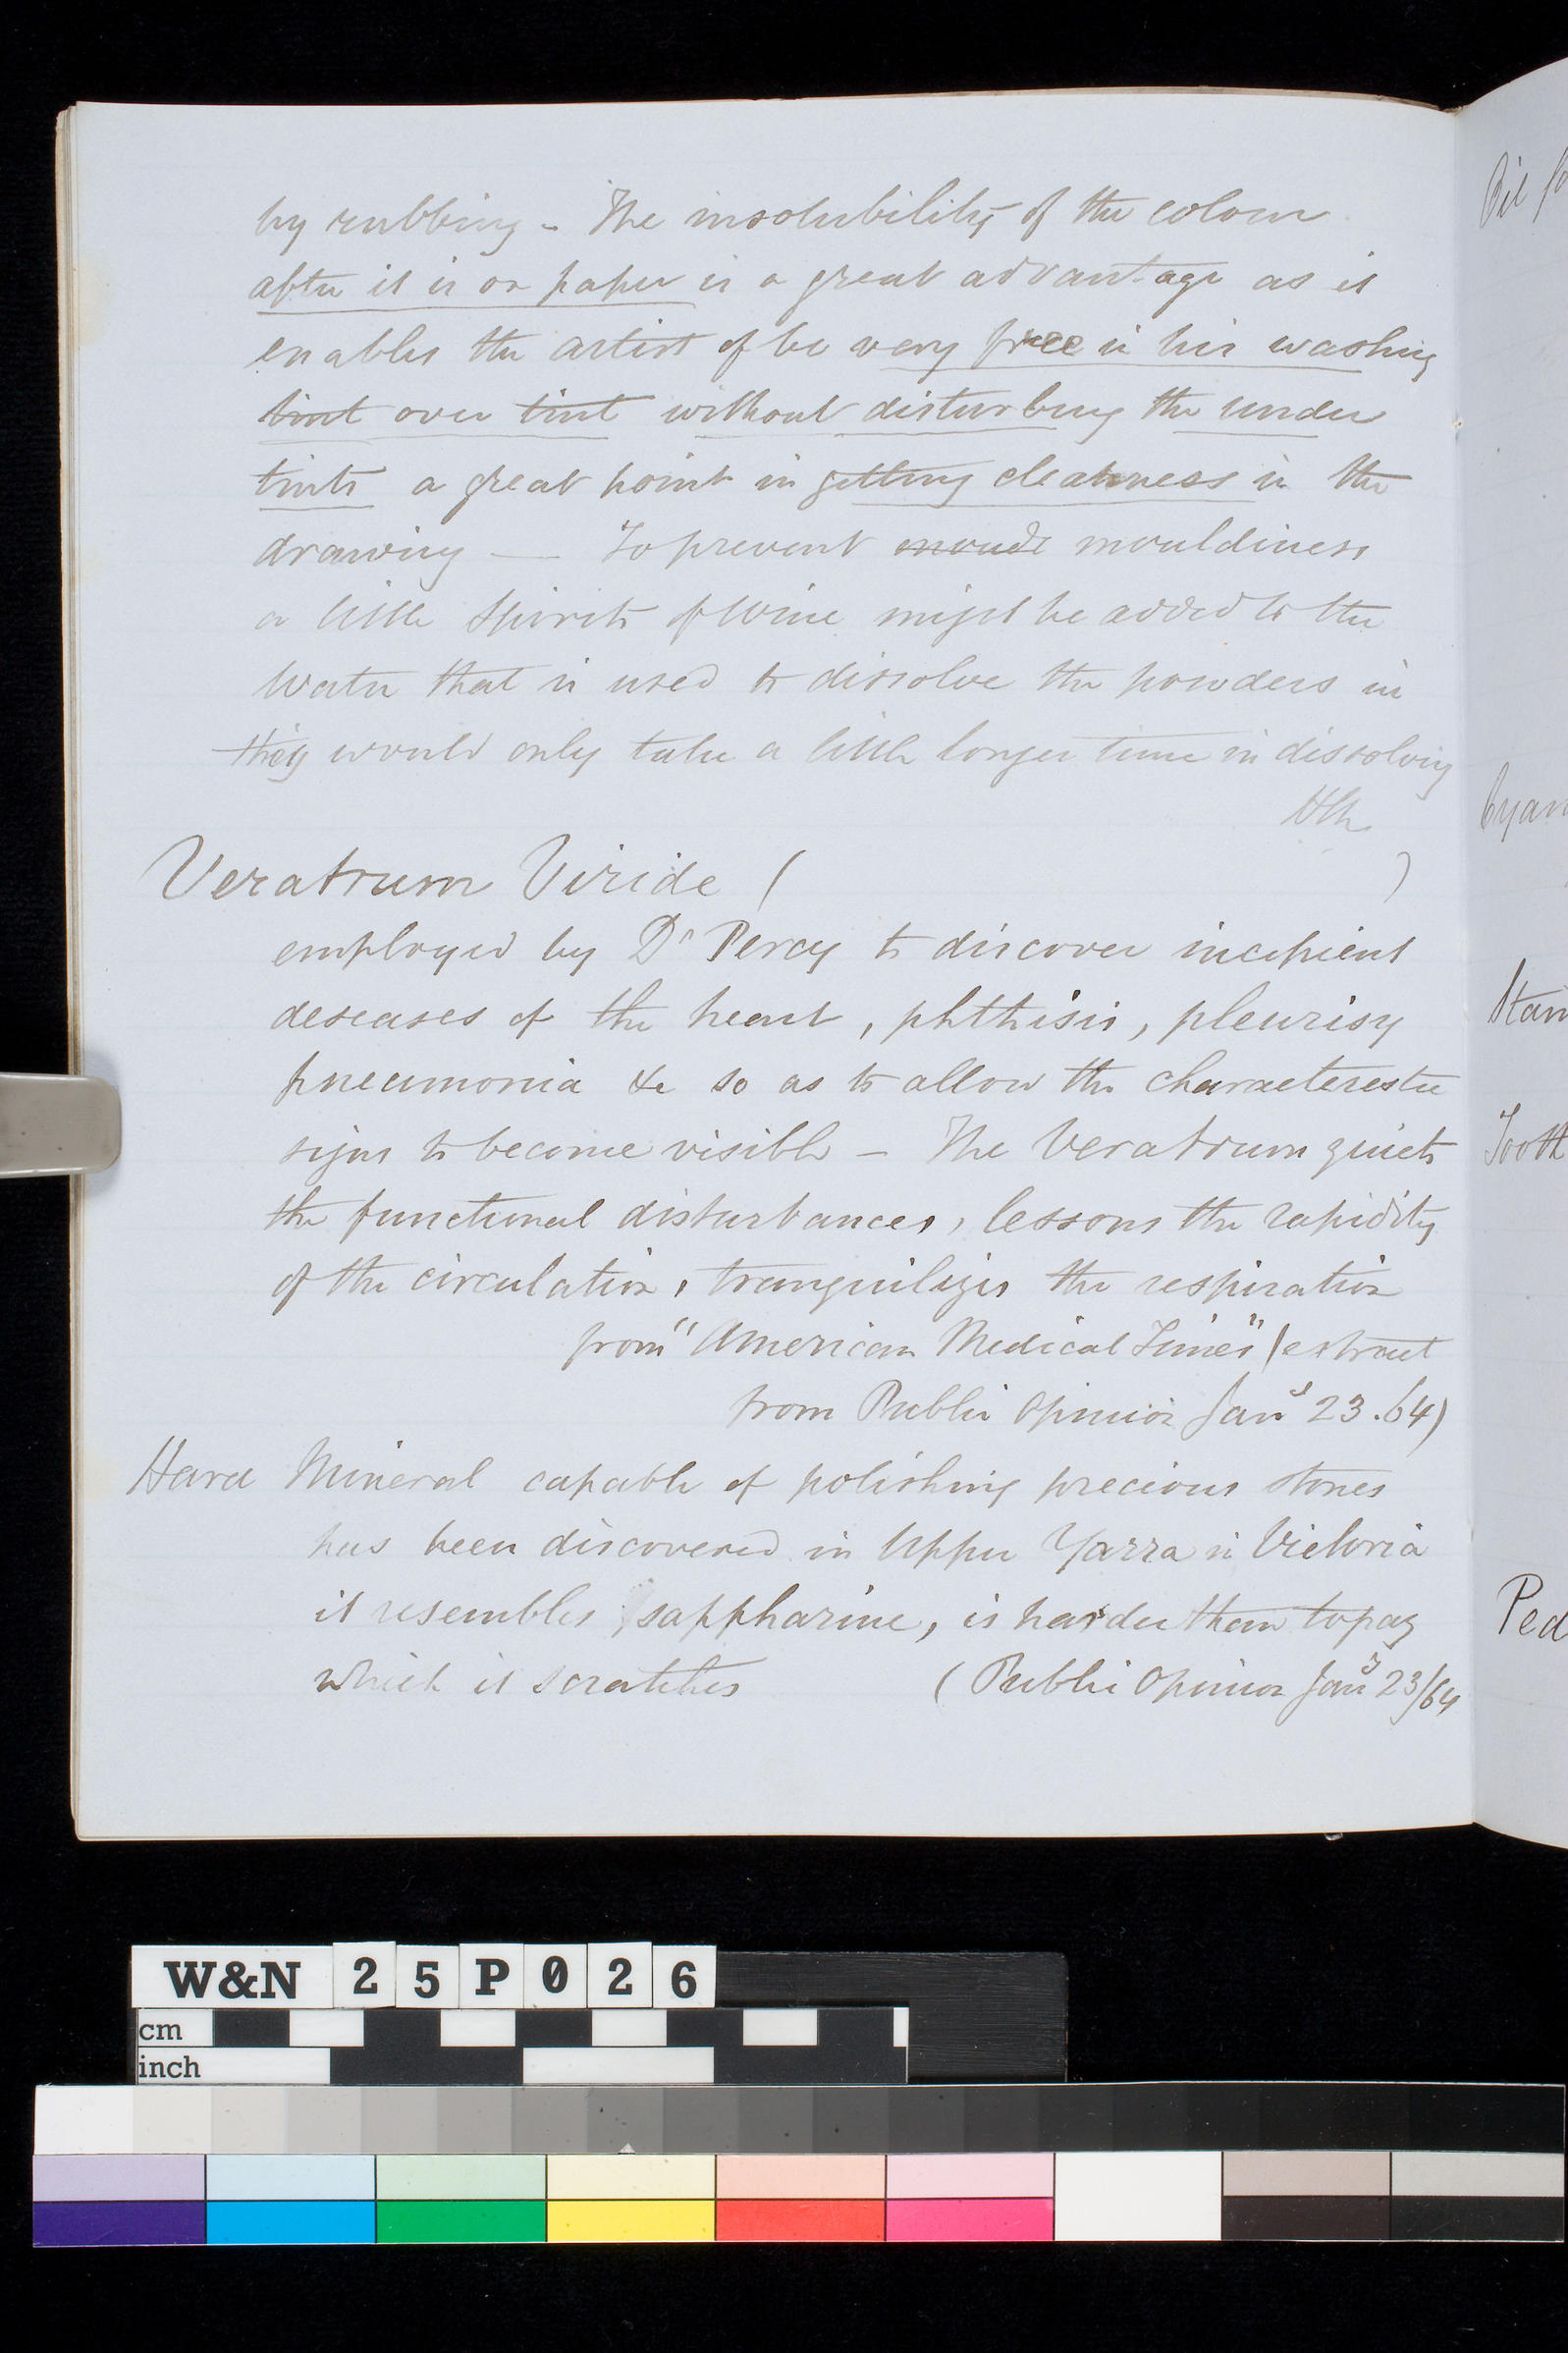 by rubbing - The insolubility of the colour
after it is on paper is a great advantage as it
enables the artist of be very free in his washing
tint over tint without disturbing the under
tints a great point in getting cleanness in the
drawing — To prevent mouldiness
a little Spirits of Wine might be added to the
water that is used to dissolve the powders in
they would only take a little longer time in dissolving
Veratrum Viride ( )
employed by Dr Percy to discover incipient
deseases of the heart, phthisis, pleurisy
pneumonia &c so as to allow the characterestic
signs to become visible - The Veratrum quiets
the functional disturbances, lessons the rapidity
of the circulation, tranquilizes the respiration
from "American Medical Times" (extract
from Public Opinion Jany 23. 64)
Hard Mineral capable of polishing precious stones
has been discovered in Upper Yarra in Victoria
it resembles sappharine, is harder than topaz
which it scratches (Public Opinion Jany 23/64
Oil
Cyan
Stan
Tooth
Ped
W&N 25P026
cm
inch